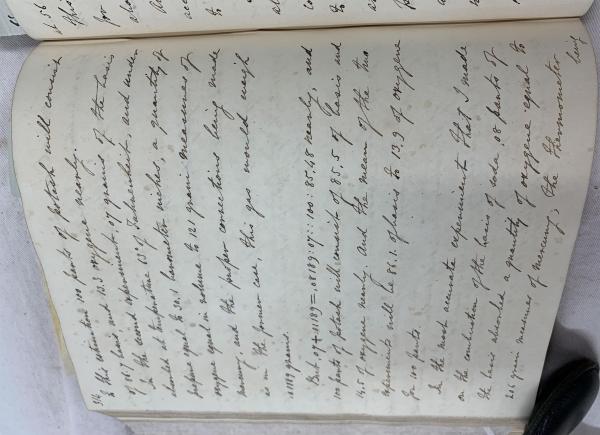 By this estimation 100 parts of potash will consist
of 86.7 basis, and 13.3 oxygene nearly.
In the second experiment, .07 grains of the basis
absorbed at temperature 63 of Fahrenheit, and under
pressure equal to 30.1 barometer inches, a quantity of
oxygene equal in volume to 121 grain measures of
mercury, and the proper corrections being made
as in the former case, this gas would weigh
.01189 grains.
But .07+.01189=.08189:.07::100:85.48 nearly, and
100 parts of potash will consist of 85.5 of basis and
14.5 of oxygene nearly. And the mean of the two
experiments will be 86.1. of basis to 13.9 of oxygene
for 100 parts.
In the most accurate experiment that I made
on the combustion of the basis of soda .08 parts of
the basis absorbed a quantity of oxygene equal to
206 grain measures of mercury; the thermometer
being